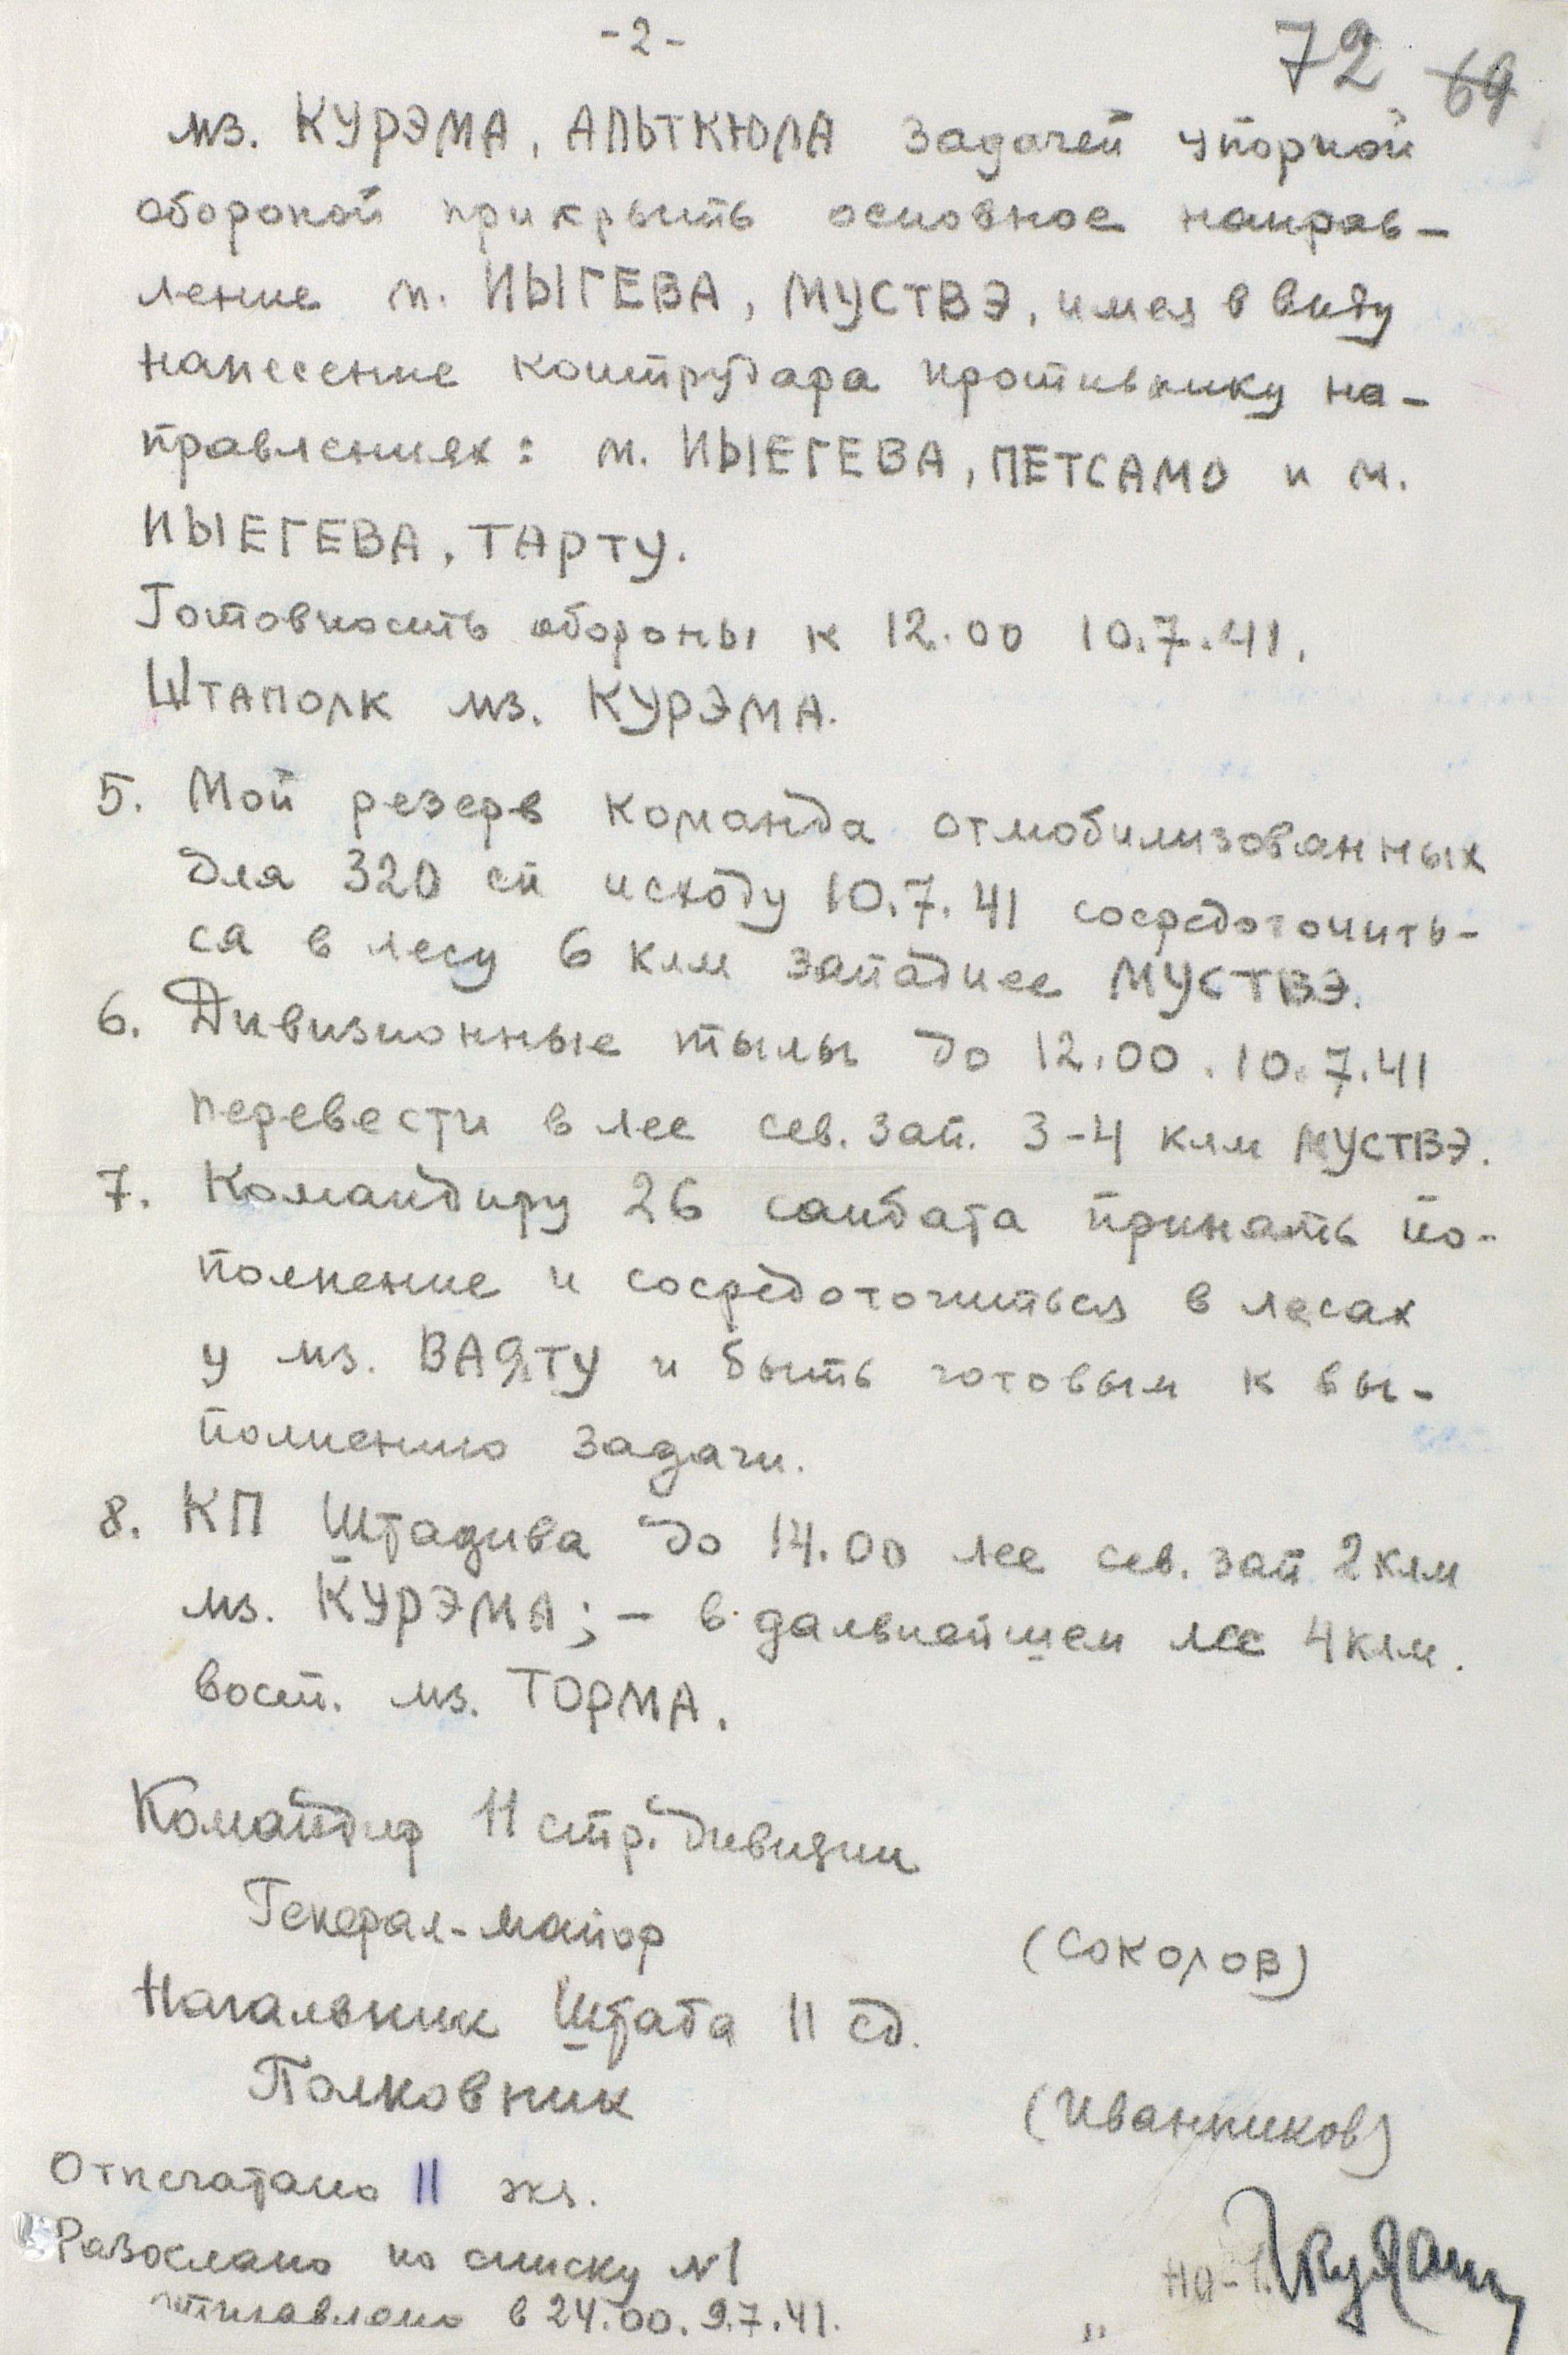 -2-
72 69
мз. КУРЭМА, АЛЬТКЮЛА задачей упорной
обороной прикрыть основное направ-
ление м. ИЫГЕВА, МУСТВЭ, имея в виду
нанесение контрудара противнику на-
правлениях: м. ИЫЕГЕВА, ПЕТСАМО и м.
ИЫЕГЕВА, ТАРТУ.
Готовность обороны к 12.00 10.7.41.
Штаполк мз. КУРЭМА.
5. Мой резерв команда отмобилизованных
для 320 сп исходу 10.7.41 сосредоточить-
ся в лесу 6 клм западнее МУСТВЭ.
6. Дивизионные тылы до 12.00. 10.7.41
перевести в лес сев. зап. 3-4 клм МУСТВЭ.
7. Командиру 26 санбата принять по-
полнение и сосредоточиться в лесах
у мз. ВАЯТУ и быть готовым к вы-
полнению задачи.
8. КП Штадива до 14.00 лес сев. зап 2 клм
мз. КУРЭМА; - в дальнейшем лес 4 клм.
вост. мз. ТОРМА.
Командир 11 стр. дивизии
Генерал-майор
(СОКОЛОВ)
Начальник Штаба 11 сд.
Полковник
(Иванников)
Отпечатано 11 экз.
Разослано по списку №1
отправлено в 24.00. 9.7.41.